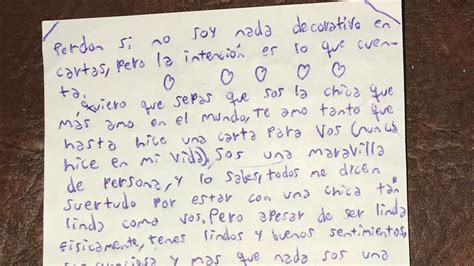 Perdon si no soy nada decorativo en
cartas, pero la intención es lo que cuen-
ta.
Quiero que sepas que sos la chica que
más amo en el mundo, te amo tanto que
hasta hice una carta para vos (nunca
hice en mi vida), Sos una maravilla
de persona, y lo sabes, todos me dicen
suertudo por estar con una chica tan
linda como vos. Pero apesar de ser linda
fisicamente, tenes lindos y buenos sentimientos,
y mas que nada sos una